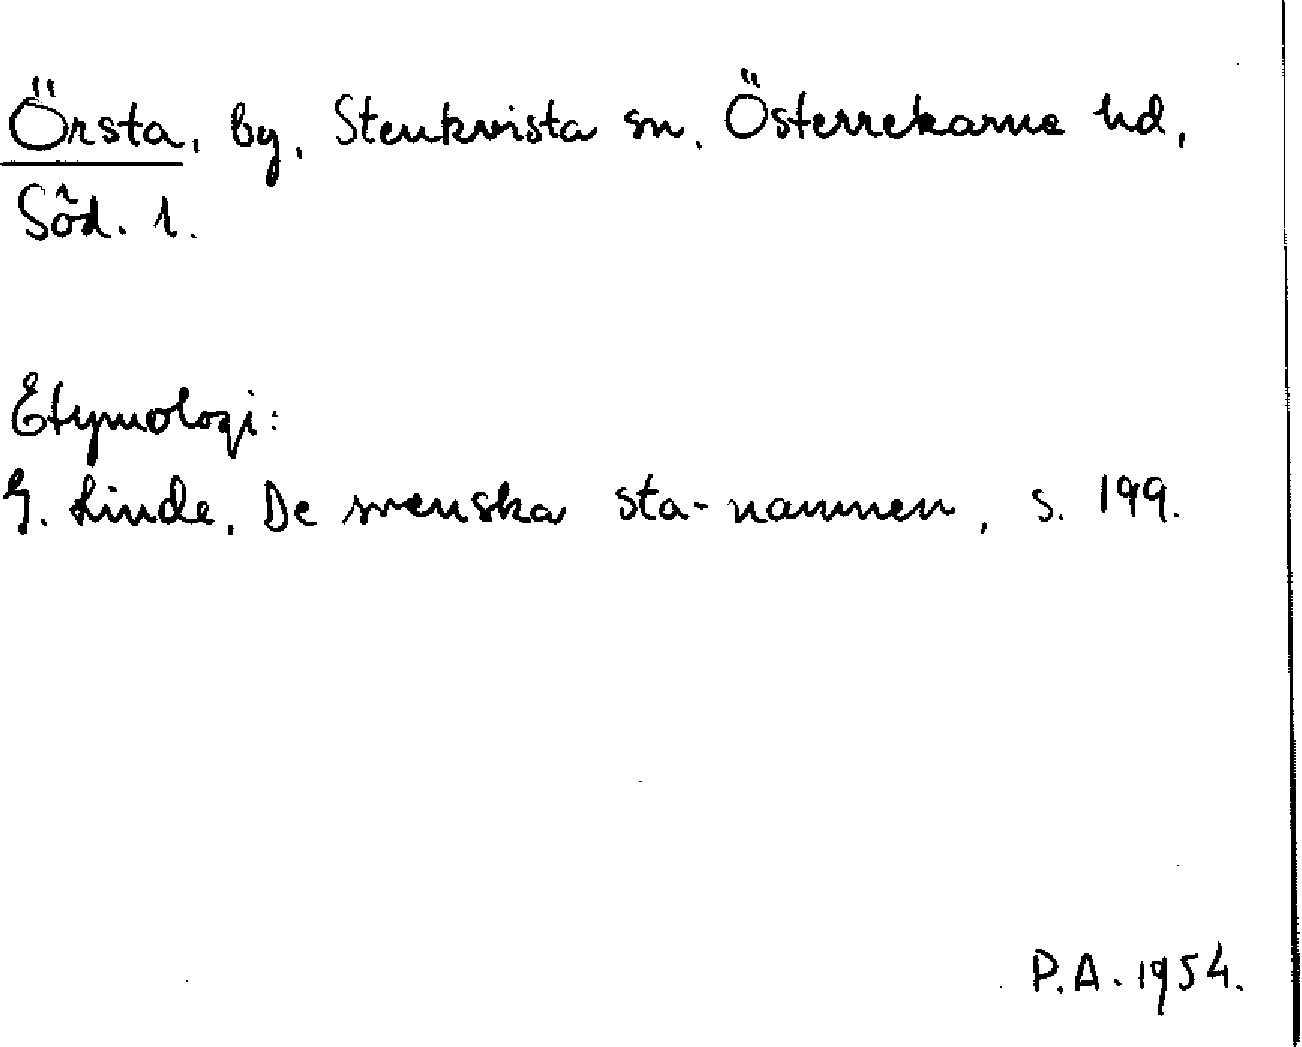 Örsta, by, Stenkvista sn, Österrekarne hd,
Söd. l.
Etymologi:
G. Linde, De svenska sta-namnen, s. 199.
P.A. 1954.